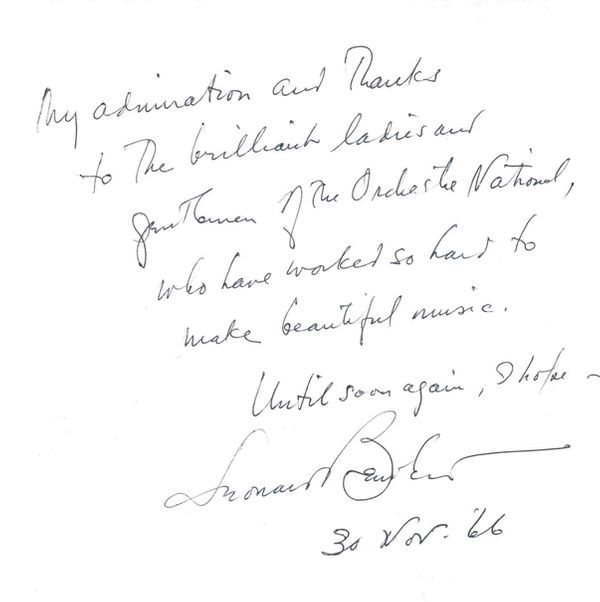 My admiration and Thanks
to The brilliant ladies and
gentlemen of the Orchestre National,
who have worked so hard to
make beautiful music.
Until soon again, I hope –
Leonard Bernstein
30 Nov. '66